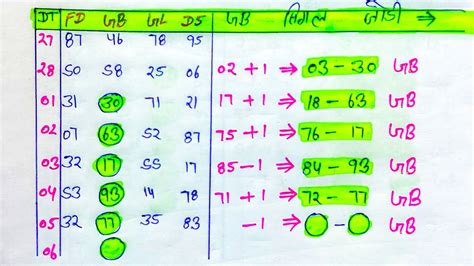 DT FD GB GL DS GB सिंगल जोड़ी ⇒
27 87 46 78 95
28 50 58 25 06 02 + 1 ⇒ 03 - 30 GB
01 31 30 71 21 17 + 1 ⇒ 18 - 63 GB
02 07 63 52 87 75 + 1 ⇒ 76 - 17 GB
03 32 17 55 17 85 - 1 ⇒ 84 - 93 GB
04 53 93 14 78 71 + 1 ⇒ 72 - 77 GB
05 32 77 35 83 - 1 ⇒ - GB
06